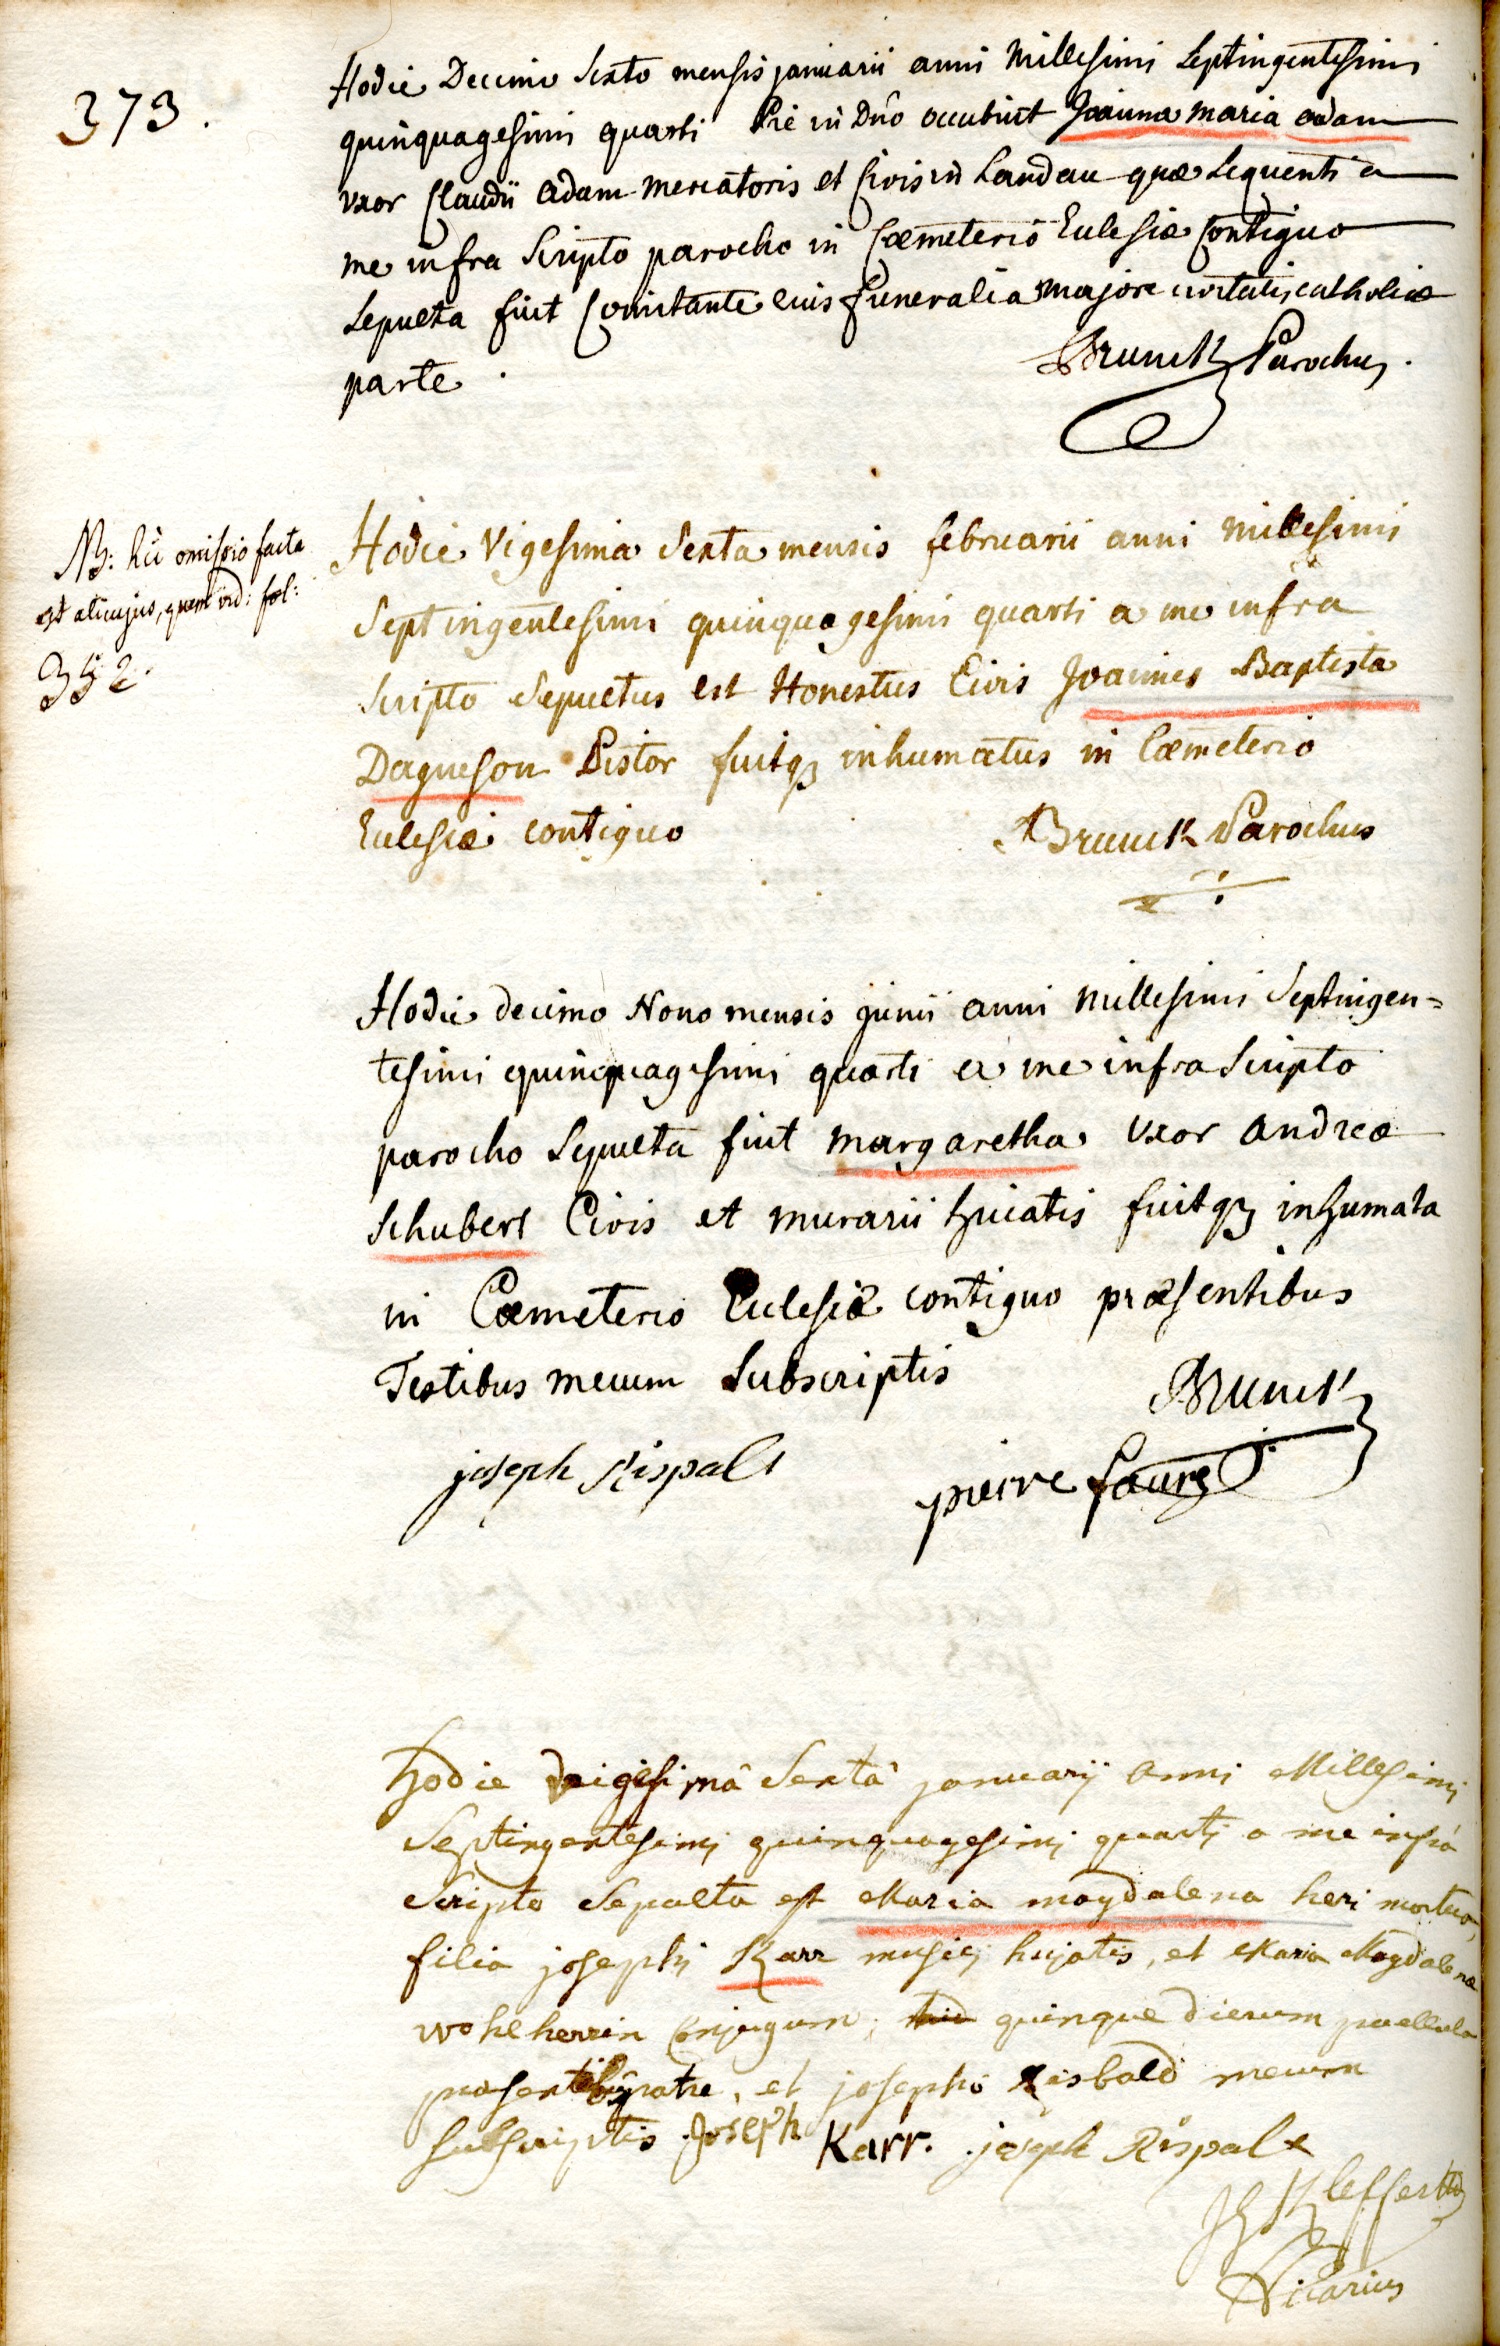 373.
Hodie Decimo Sexto mensis januarii anni Millesimi Septingentesimi
quinquagesimi quarti Pie in Dño occubuit Joanna Maria adam
uxor Claudii adam mercatoris et Civis in Landau quae sequenti a
me infra Scripto parocho in Coemeterio Eclesiae Contiguo
Sepulta fuit Comitante eius funeralia majore civitatis catholicae
parte.
Brunck Parochus.
NB: hic omissio facta
est alicujus, quem vid: fol:
352.
Hodie Vigesima Sexta mensis februarii anni Millesimi
Septingentesimi quinquagesimi quarti a me infra
scripto Sepultus est Honestus Civis Joannes Baptista
Dagueson Pistor fuitq; inhumatus in Coemeterio
Eclesiae contiguo
Brunck Parochus
Hodie decimo Nono mensis junii anni Millesimi Septingen=
tesimi quinquagesimi quarti a me infra Scripto
parocho Sepulta fuit Margaretha uxor Andreae
Schubert Civis et murarii huiatis fuitq; inhumata
in Coemeterio Eclesiae contiguo praesentibus
Testibus mecum Subscriptis
Brunck
joseph Rispalt
pierre faure
hodie vigesimâ Sextâ januarij anni Millesimj
Septingentesimj quinquagesimj quartj a me infrà
Scripto Sepulta est Maria magdalena heri mortua,
filia josephj Karr musicj hujatis, et Maria Magdalenae
wohlherrin Conjugum; quinque dierum puellula
praesentibus patre, et josepho Risbald mecum
subscriptis Joseph Karr. joseph Rispalt
Kleffer
Vicarius